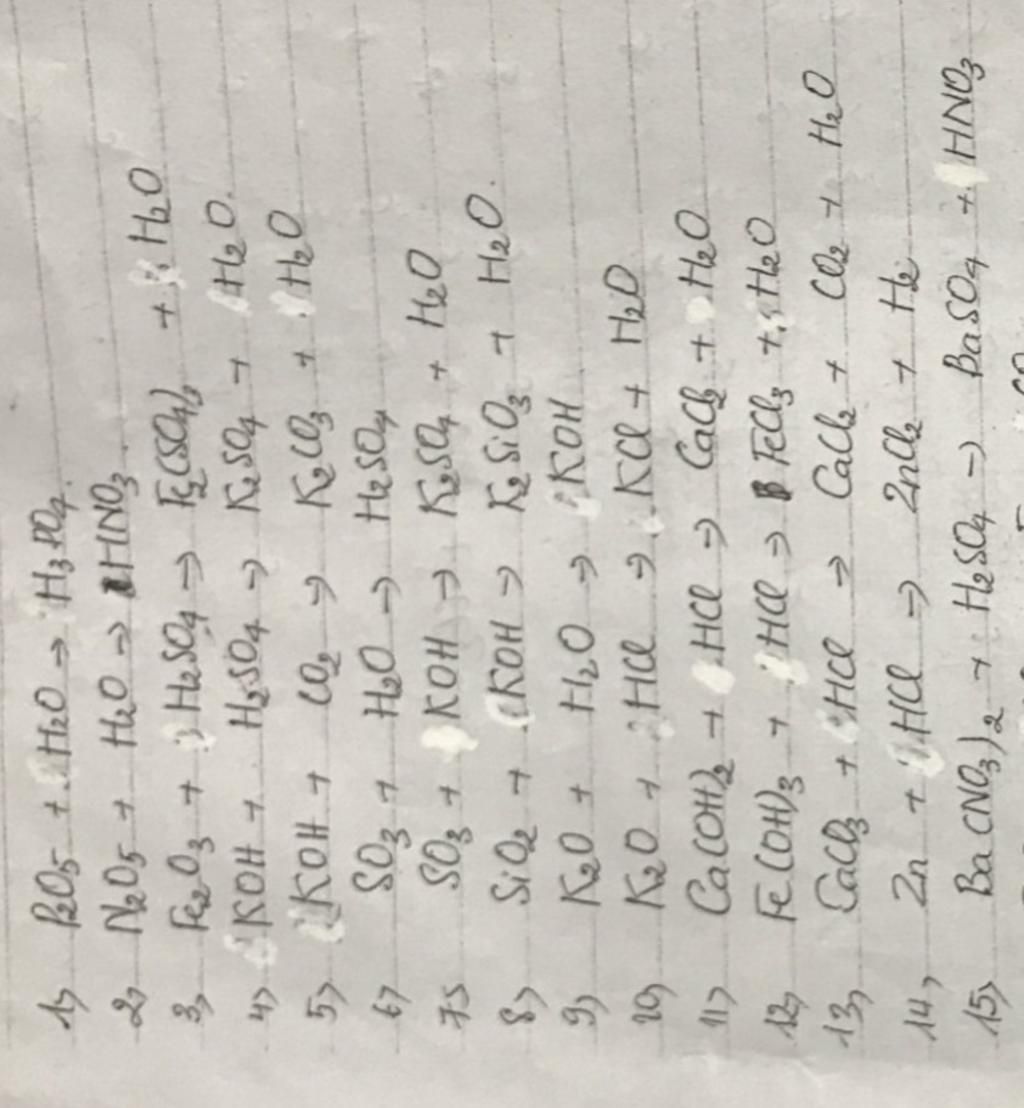 1) P2O5 + H2O → H3PO4.
2) N2O5 + H2O → HNO3.
3) Fe2O3 + H2SO4 → Fe2(SO4)3 + H2O
4) KOH + H2SO4 → K2SO4 + H2O.
5) KOH + CO2 → K2CO3 + H2O
6) SO3 + H2O → H2SO4
7) SO3 + KOH → K2SO4 + H2O
8) SiO2 + KOH → K2SiO3 + H2O.
9) K2O + H2O → KOH
10) K2O + HCl → KCl + H2O
11) Ca(OH)2 + HCl → CaCl2 + H2O
12) Fe(OH)3 + HCl → FeCl3 + H2O
13) CaCO3 + HCl → CaCl2 + CO2 + H2O
14) Zn + HCl → ZnCl2 + H2
15) Ba(NO3)2 + H2SO4 → BaSO4 + HNO3